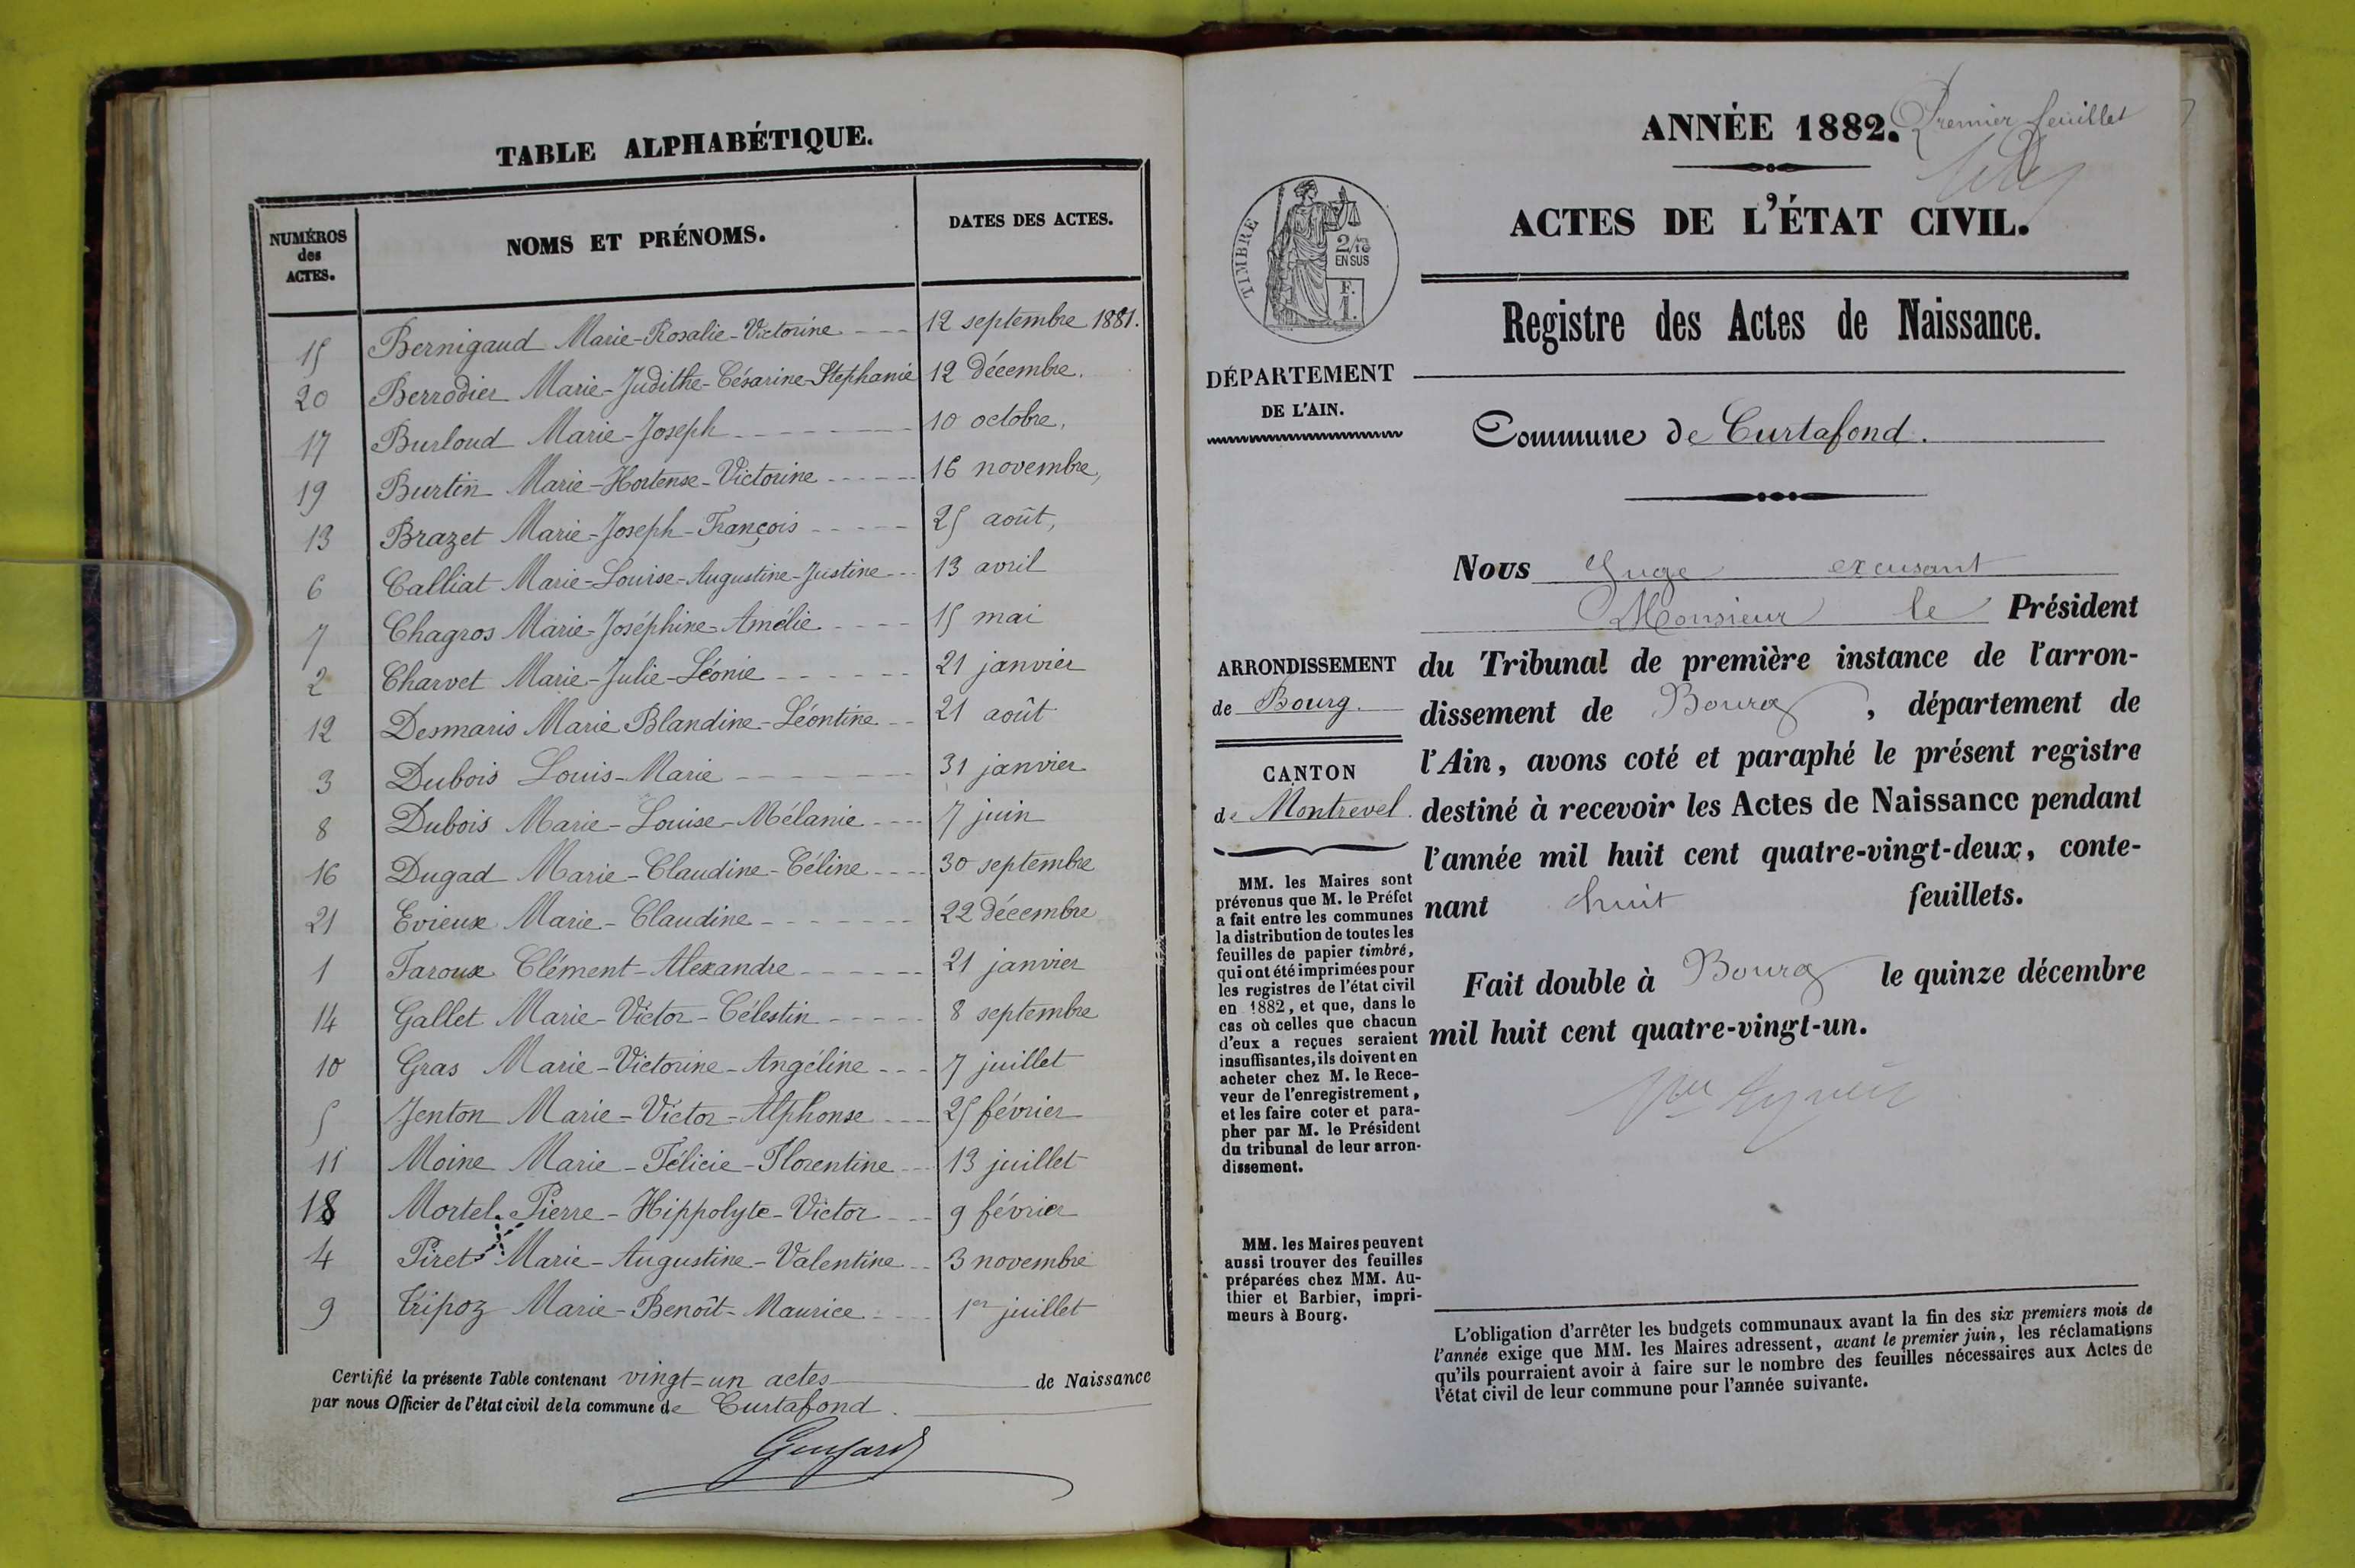 TABLE ALPHABÉTIQUE.
NUMÉROS des ACTES. NOMS ET PRÉNOMS. DATES DES ACTES.
15 Bernigaud Marie-Rosalie-Victorine 12 septembre 1881.
20 Berrodier Marie-Judithe-Césarine-Stephanie 12 décembre.
17 Burloud Marie-Joseph 10 octobre,
19 Burtin Marie-Hortense-Victorine 16 novembre,
13 Brazet Marie-Joseph-François 25 août,
6 Calliat Marie-Louise-Augustine-Justine 13 avril
7 Chagros Marie-Joséphine-Amélie 15 mai
2 Charvet Marie-Julie-Léonie 21 janvier
12 Desmaris Marie Blandine-Léontine 21 août
3 Dubois Louis-Marie 31 janvier
8 Dubois Marie-Louise-Mélanie 7 juin
16 Dugad Marie-Claudine-Céline 30 septembre
21 Evieux Marie-Claudine 22 décembre
1 Faroux Clément-Alexandre 21 janvier
14 Gallet Marie-Victor-Célestin 8 septembre
10 Gras Marie-Victorine-Angéline 7 juillet
5 Jenton Marie-Victor-Alphonse 25 février
11 Moine Marie-Félicie-Florentine 13 juillet
18 Mortel Pierre-Hippolyte-Victor 9 février
4 Piret Marie-Augustine-Valentine 3 novembre
9 Tripoz Marie-Benoît-Maurice 1er juillet
Certifié la présente Table contenant vingt-un actes de Naissance
par nous Officier de l'état civil de la commune de Curtafond.
ANNÉE 1882. Premier feuillet
ACTES DE L'ÉTAT CIVIL.
TIMBRE
2/10
EN SUS
F.
1.
Registre des Actes de Naissance.
DÉPARTEMENT
DE L'AIN.
Commune de Curtafond.
Nous Juge excusant
Monsieur le Président
du Tribunal de première instance de l'arron-
dissement de Bourg, département de
l'Ain, avons coté et paraphé le présent registre
destiné à recevoir les Actes de Naissance pendant
l'année mil huit cent quatre-vingt-deux, conte-
nant huit feuillets.
Fait double à Bourg le quinze décembre
mil huit cent quatre-vingt-un.
ARRONDISSEMENT
de Bourg.
CANTON
de Montrevel.
MM. les Maires sont
prévenus que M. le Préfet
a fait entre les communes
la distribution de toutes les
feuilles de papier timbré,
qui ont été imprimées pour
les registres de l'état civil
en 1882, et que, dans le
cas où celles que chacun
d'eux a reçues seraient
insuffisantes, ils doivent en
acheter chez M. le Rece-
veur de l'enregistrement,
et les faire coter et para-
pher par M. le Président
du tribunal de leur arron-
dissement.
MM. les Maires peuvent
aussi trouver des feuilles
préparées chez MM. Au-
thier et Barbier, impri-
meurs à Bourg.
L'obligation d'arrêter les budgets communaux avant la fin des six premiers mois de
l'année exige que MM. les Maires adressent, avant le premier juin, les réclamations
qu'ils pourraient avoir à faire sur le nombre des feuilles nécessaires aux Actes de
l'état civil de leur commune pour l'année suivante.